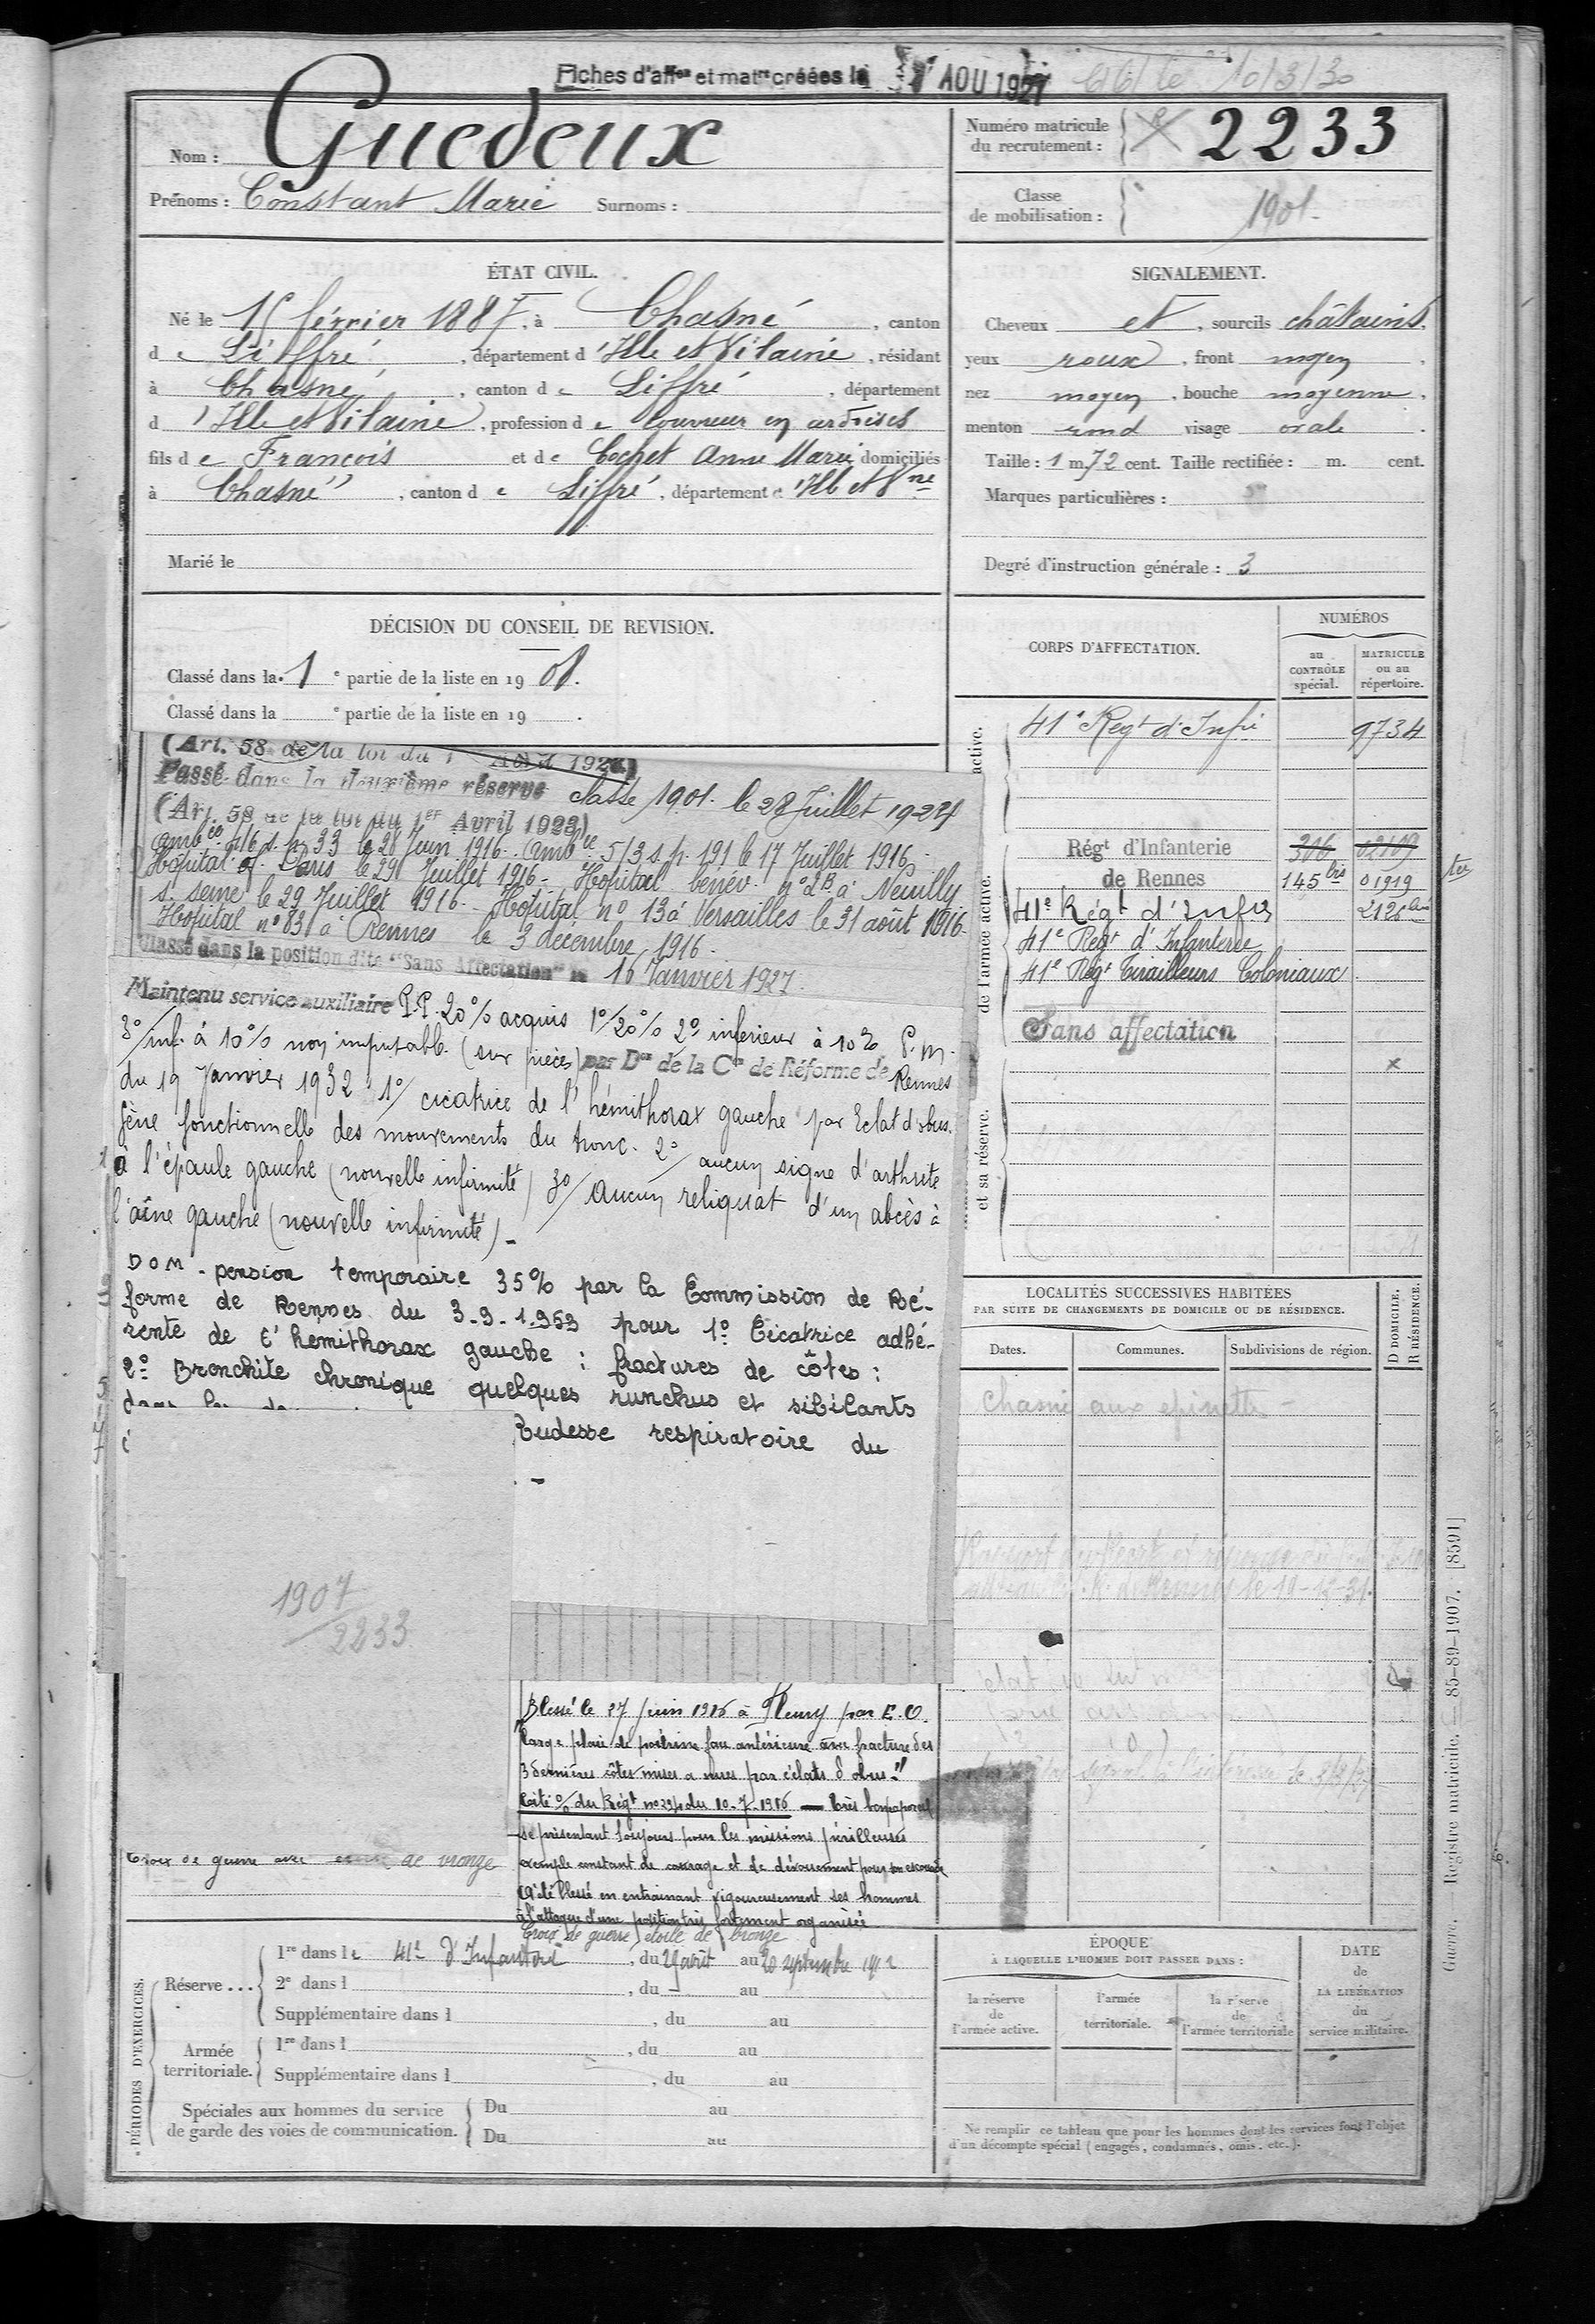 Fiches d'affon et matre créées le AOU 1927 le 10/3/30
Nom : Guedeux
Prénoms : Constant Marie Surnoms :
Numéro matricule du recrutement : 2233
Classe de mobilisation : 1901.
ÉTAT CIVIL.
Né le 15 février 1887, à Chasné, canton
de Liffré, département d'Ille et Vilaine, résidant
à Chasné, canton de Liffré, département
d'Ille et Vilaine, profession de Couvreur en ardoises
fils de François et de Cochet Anne Marie domiciliés
à Chasné, canton de Liffré, département d'Ill et Vne
Marié le
SIGNALEMENT.
Cheveux et, sourcils châtains.
yeux roux, front moyen,
nez moyen, bouche moyenne,
menton rond visage ovale.
Taille : 1 m. 72 cent. Taille rectifiée : m. cent.
Marques particulières :
Degré d'instruction générale : 3
DÉCISION DU CONSEIL DE REVISION.
Classé dans la 1e partie de la liste en 19 08.
Classé dans la e partie de la liste en 19 .
(Art. 58 de la loi du 1 Avril 1923)
Passé dans la deuxième réserve classe 1901. le 28 Juillet 1924
(Art. 58 de la loi du 1er Avril 1923)
ambce 4/6 s.p. 33 le 28 Juin 1916. ambce 5/3 s.p. 191 le 17 Juillet 1916.
Hôpital Paris le 29 Juillet 1916 - Hôpital bénév. n° 2B à Neuilly
s. seine le 29 Juillet 1916. Hôpital n° 13 à Versailles le 31 août 1916.
Hôpital n° 83 à Rennes le 3 décembre 1916.
Classé dans la position dite "Sans Affectation" le 16 Janvier 1927.
Maintenu service auxiliaire P.P. 20 % acquis 1°/20 % 2° inférieur à 10 % P.M.
3°/inf. à 10 % non imputable (sur pièces) par Don de la Con de Réforme de Rennes
du 19 Janvier 1932 1°/ cicatrice de l'hémithorax gauche par Eclat d'obus.
gêne fonctionnelle des mouvements du tronc. 2°/ aucun signe d'arthrite
à l'épaule gauche (nouvelle infirmité) 3°/ Aucun reliquat d'un abcès à
l'aîne gauche (nouvelle infirmité) -
DOM - pension temporaire 35% par la Commission de Ré-
forme de Rennes du 3-9-1953 pour 1° Cicatrice adhé-
rente de l'hémithorax gauche : fractures de côtes :
2° Bronchite chronique quelques runchus et sibilants
Rudesse respiratoire du
1907
2233
Blessé le 27 juin 1916 à Fleury par E.O.
"large plaie de poitrine face antérieure avec fracture des
3 dernières côtes mises a nues par éclats d'obus."
Cité % du Régt n° 294 du 10-7-1916 — très bon caporal
se présentant toujours pour les missions périlleuses
exemple constant de courage et de dévouement pour son escouade
a été blessé en entrainant vigoureusement ses hommes
à l'attaque d'une position très fortement organisée
Croix de guerre étoile de bronze
Croix de guerre avec étoile de bronze
CORPS D'AFFECTATION.
NUMÉROS
au CONTRÔLE spécial.
MATRICULE ou au répertoire.
active.
41e Regt d'Infie 9734
de l'armée active.
Régt d'Infanterie 306 02109
de Rennes 145 01919 ter
41e Régt d'Infie 2126
41e Regt d'Infanterie
41e Régt Tirailleurs Coloniaux
Sans affectation
et sa réserve.
LOCALITÉS SUCCESSIVES HABITÉES
PAR SUITE DE CHANGEMENTS DE DOMICILE OU DE RÉSIDENCE.
Dates. Communes. Subdivisions de région.
D DOMICILE.
R RÉSIDENCE.
Chasné aux epinettes
PÉRIODES D'EXERCICES.
Réserve ...
1re dans le 41e d'Infanterie, du 29 août au 20 septembre 1912
2e dans l , du au
Supplémentaire dans l , du au
Armée territoriale.
1re dans l , du au
Supplémentaire dans l , du au
Spéciales aux hommes du service de garde des voies de communication.
Du au
Du au
ÉPOQUE
À LAQUELLE L'HOMME DOIT PASSER DANS :
la réserve de l'armée active.
l'armée territoriale.
la réserve de l'armée territoriale
DATE de LA LIBÉRATION du service militaire.
Ne remplir ce tableau que pour les hommes dont les services font l'objet
d'un décompte spécial (engagés, condamnés, omis, etc.).
Guerre. Registre matricule. — 85-89-1907. [8591]